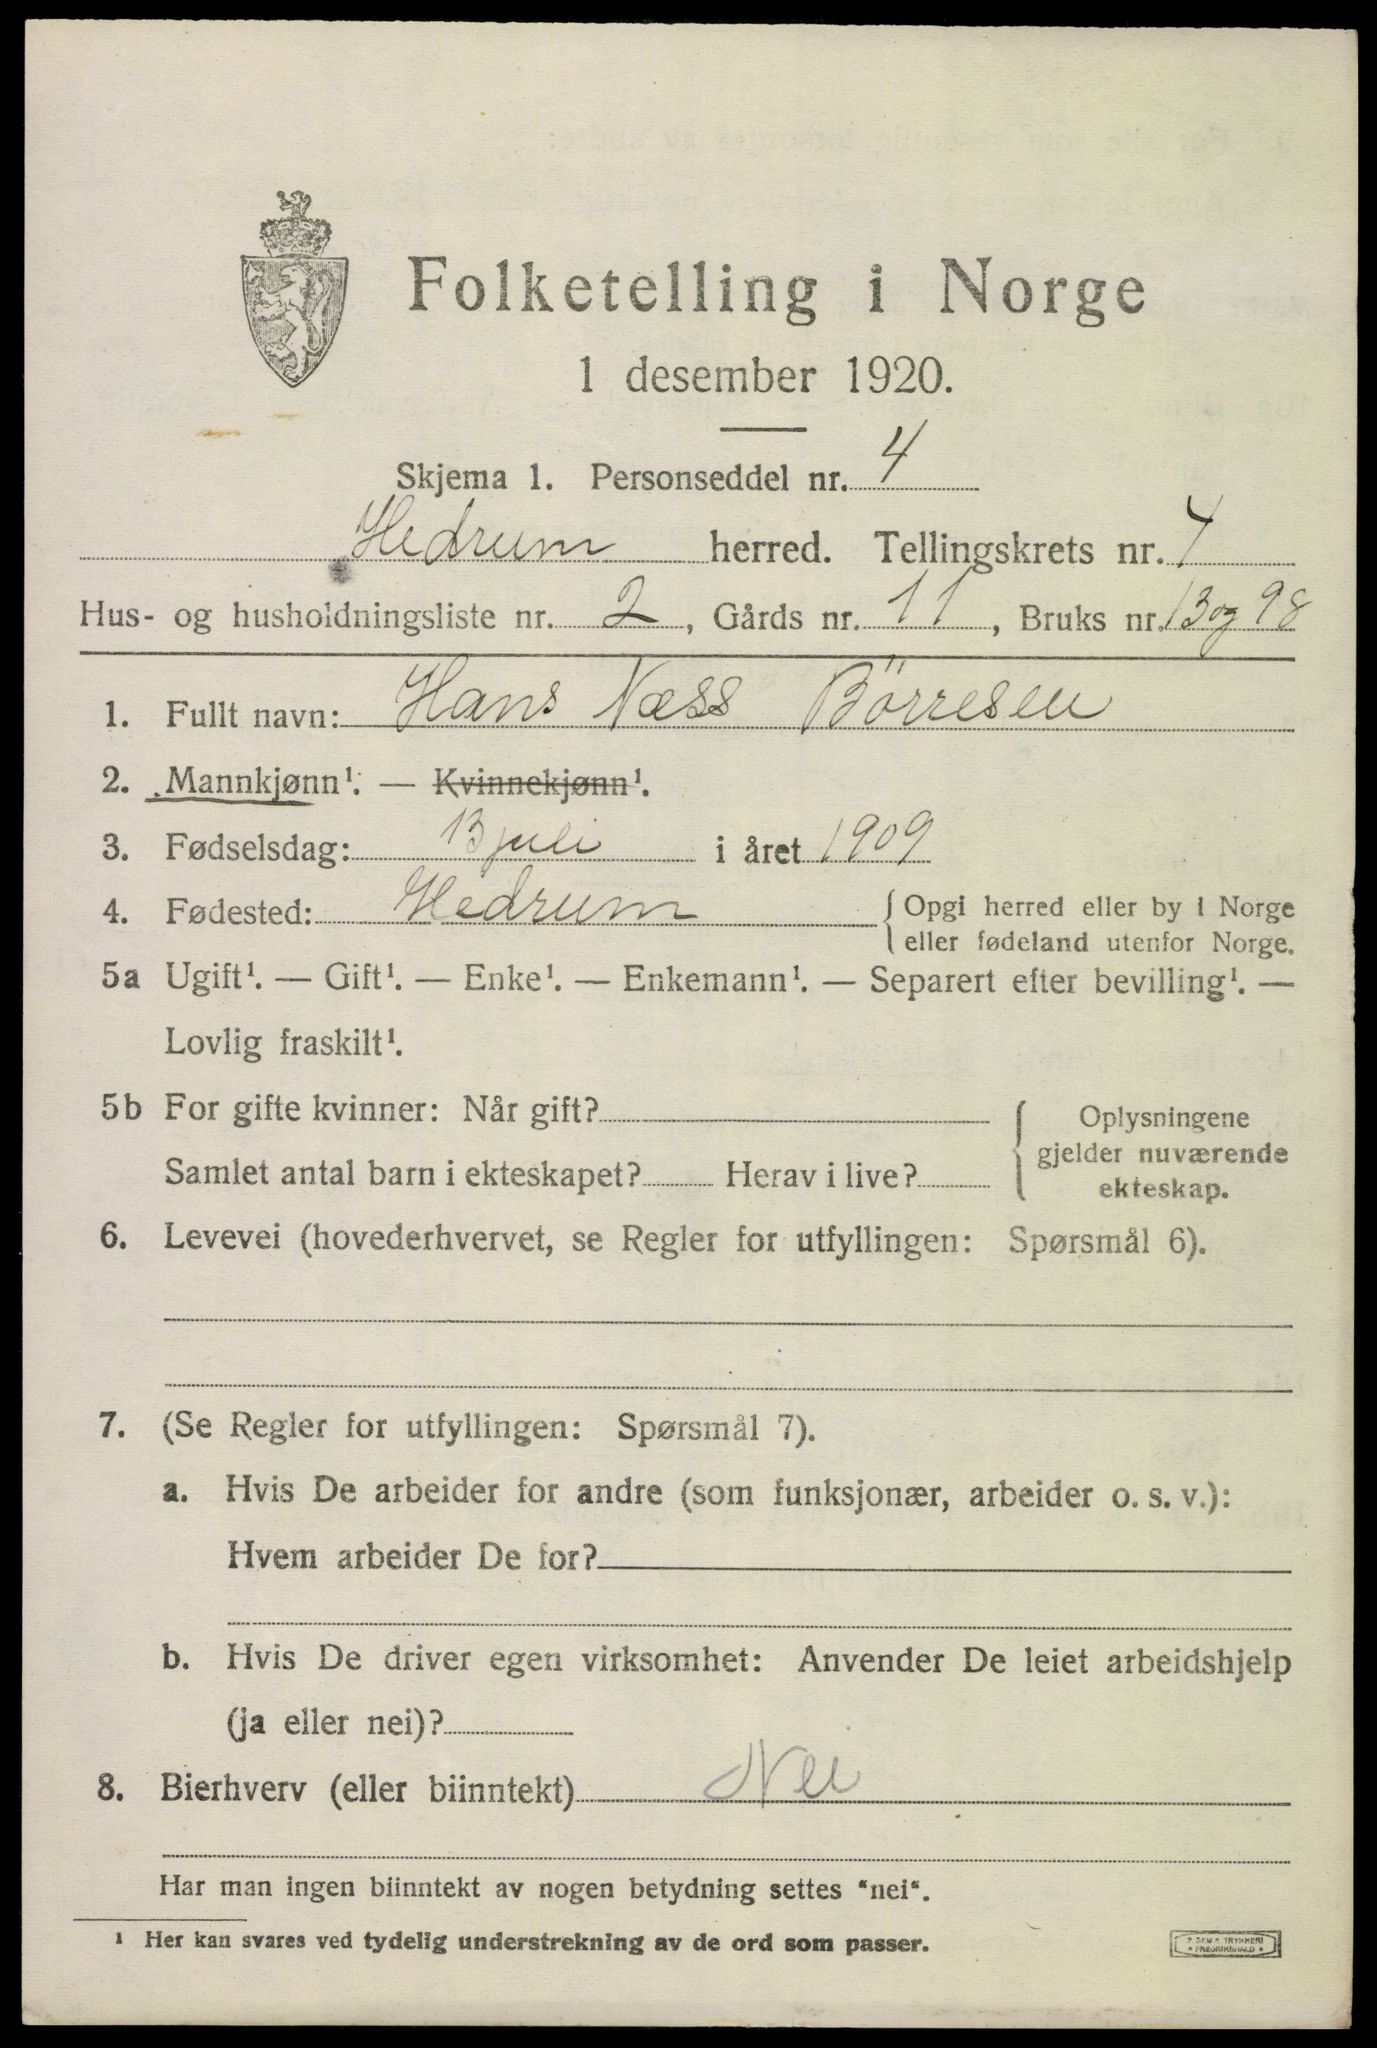 Folketelling i Norge
1 desember 1920.
Skjema 1. Personseddel nr. 4
Hedrum herred. Tellingskrets nr. 4
Hus- og husholdningsliste nr. 2, Gårds nr. 11, Bruks nr. 13 og 98
1. Fullt navn: Hans Næss Börresen
2. Mannkjønn¹. — Kvinnekjønn¹.
3. Fødselsdag: 13 juli i året 1909
4. Fødested: Hedrum { Opgi herred eller by i Norge
eller fødeland utenfor Norge.
5a Ugift¹. — Gift¹. — Enke¹. — Enkemann¹. — Separert efter bevilling¹. —
Lovlig fraskilt¹.
5b For gifte kvinner: Når gift?
Samlet antal barn i ekteskapet? Herav i live?
Oplysningene
gjelder nuværende
ekteskap.
6. Levevei (hovederhvervet, se Regler for utfyllingen: Spørsmål 6).
7. (Se Regler for utfyllingen: Spørsmål 7).
a. Hvis De arbeider for andre (som funksjonær, arbeider o. s. v.):
Hvem arbeider De for?
b. Hvis De driver egen virksomhet: Anvender De leiet arbeidshjelp
(ja eller nei)?
8. Bierhverv (eller biinntekt) Nei
Har man ingen biinntekt av nogen betydning settes "nei".
¹ Her kan svares ved tydelig understrekning av de ord som passer.
P. SEM'S TRYKKERI
• FREDRIKSHALD •